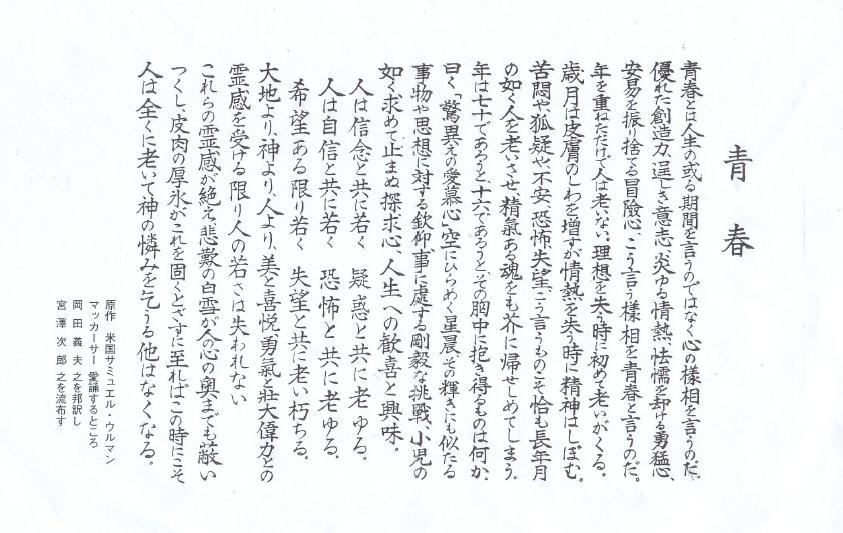 青春
青春とは人生の或る期間を言うのではなく心の様相を言うのだ。
優れた創造力、逞しき意志、炎ゆる情熱、怯懦を却ける勇猛心、
安易を振り捨てる冒險心、こう言う様相を青春と言うのだ。
年を重ねただけで人は老いない。理想を失う時に初めて老いがくる。
歳月は皮膚のしわを増すが情熱を失う時に精神はしぼむ。
苦悶や、狐疑や、不安、恐怖、失望、こう言うものこそ恰も長年月
の如く人を老いさせ、精氣ある魂をも芥に帰せしめてしまう。
年は七十であろうと十六であろうと、その胸中に抱き得るものは何か。
曰く「驚異えの愛慕心」空にひらめく星晨、その輝きにも似たる
事物や思想に対する欽仰、事に處する剛毅な挑戦、小児の
如く求めて止まぬ探求心、人生への歓喜と興味。
人は信念と共に若く　疑惑と共に老ゆる。
人は自信と共に若く　恐怖と共に老ゆる。
希望ある限り若く　失望と共に老い朽ちる。
大地より、神より、人より、美と喜悦、勇氣と壮大、偉力との
霊感を受ける限り人の若さは失われない
これらの霊感が絶え、悲歎の白雪が人の心の奥までも蔽い
つくし、皮肉の厚氷がこれを固くとざすに至ればこの時にこそ
人は全くに老いて神の憐みを乞うる他はなくなる。
原作　米国サミュエル・ウルマン
マッカーサー 愛誦するところ
岡田義夫 之を邦訳し
宮澤次郎 之を流布す